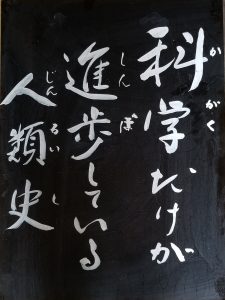 科学だけが
進歩している
人類史
かがく
しんぽ
じんるいし